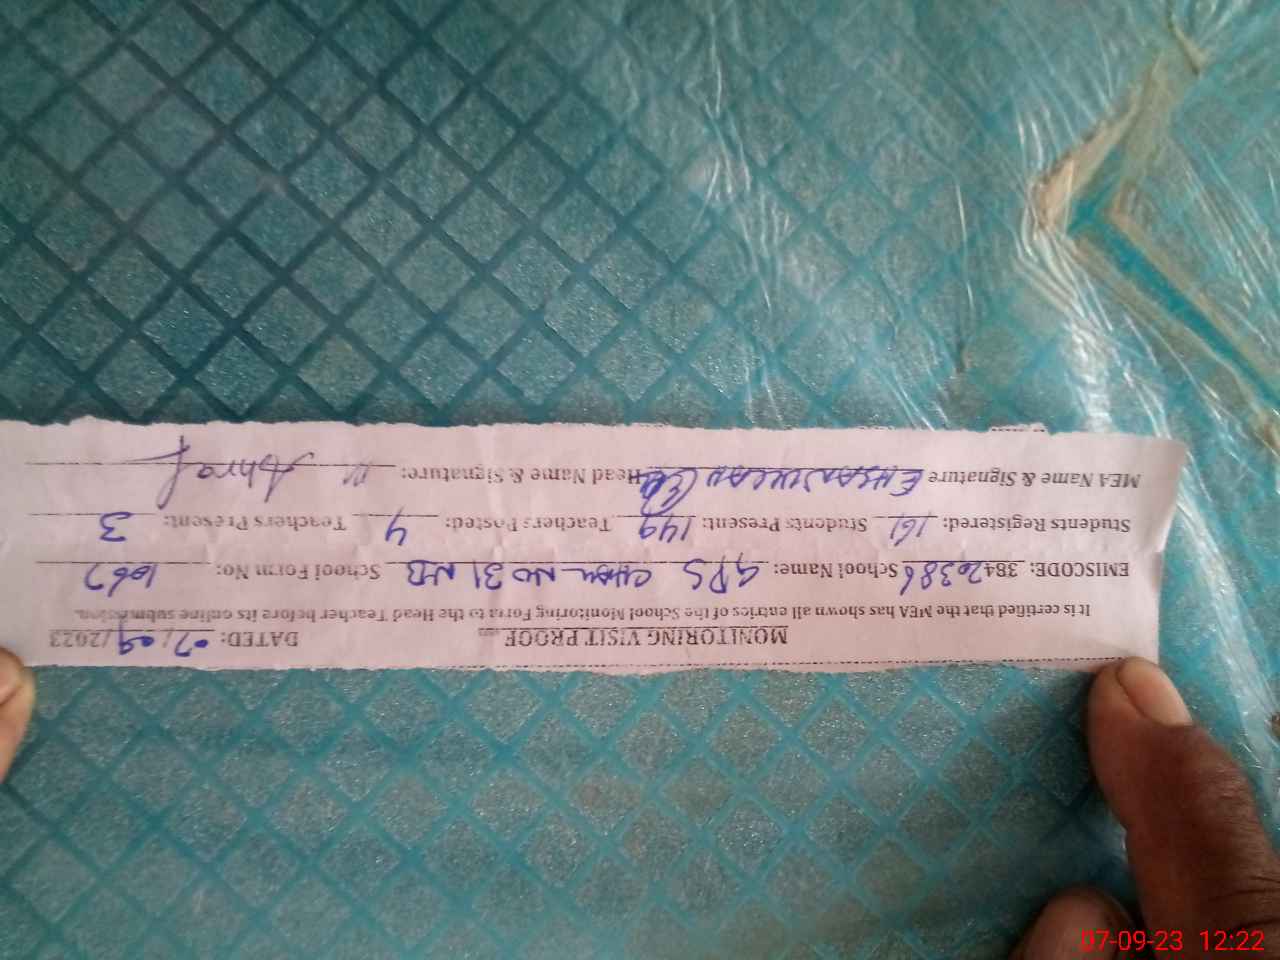 MONITORING VISIT PROOF DATED: 07/09/2023
It is certified that the MEA has shown all entries of the School Monitoring Form to the Head Teacher before its online submission.
EMISCODE: 38420386 School Name: GPS CHAK NO 31 NB School Form No: 1067
Students Registered: 161 Students Present: 149 Teachers Posted: 4 Teachers Present: 3
MEA Name & Signature EHSAN ULLAH Head Name & Signature: M Ashraf
07-09-23 12:22